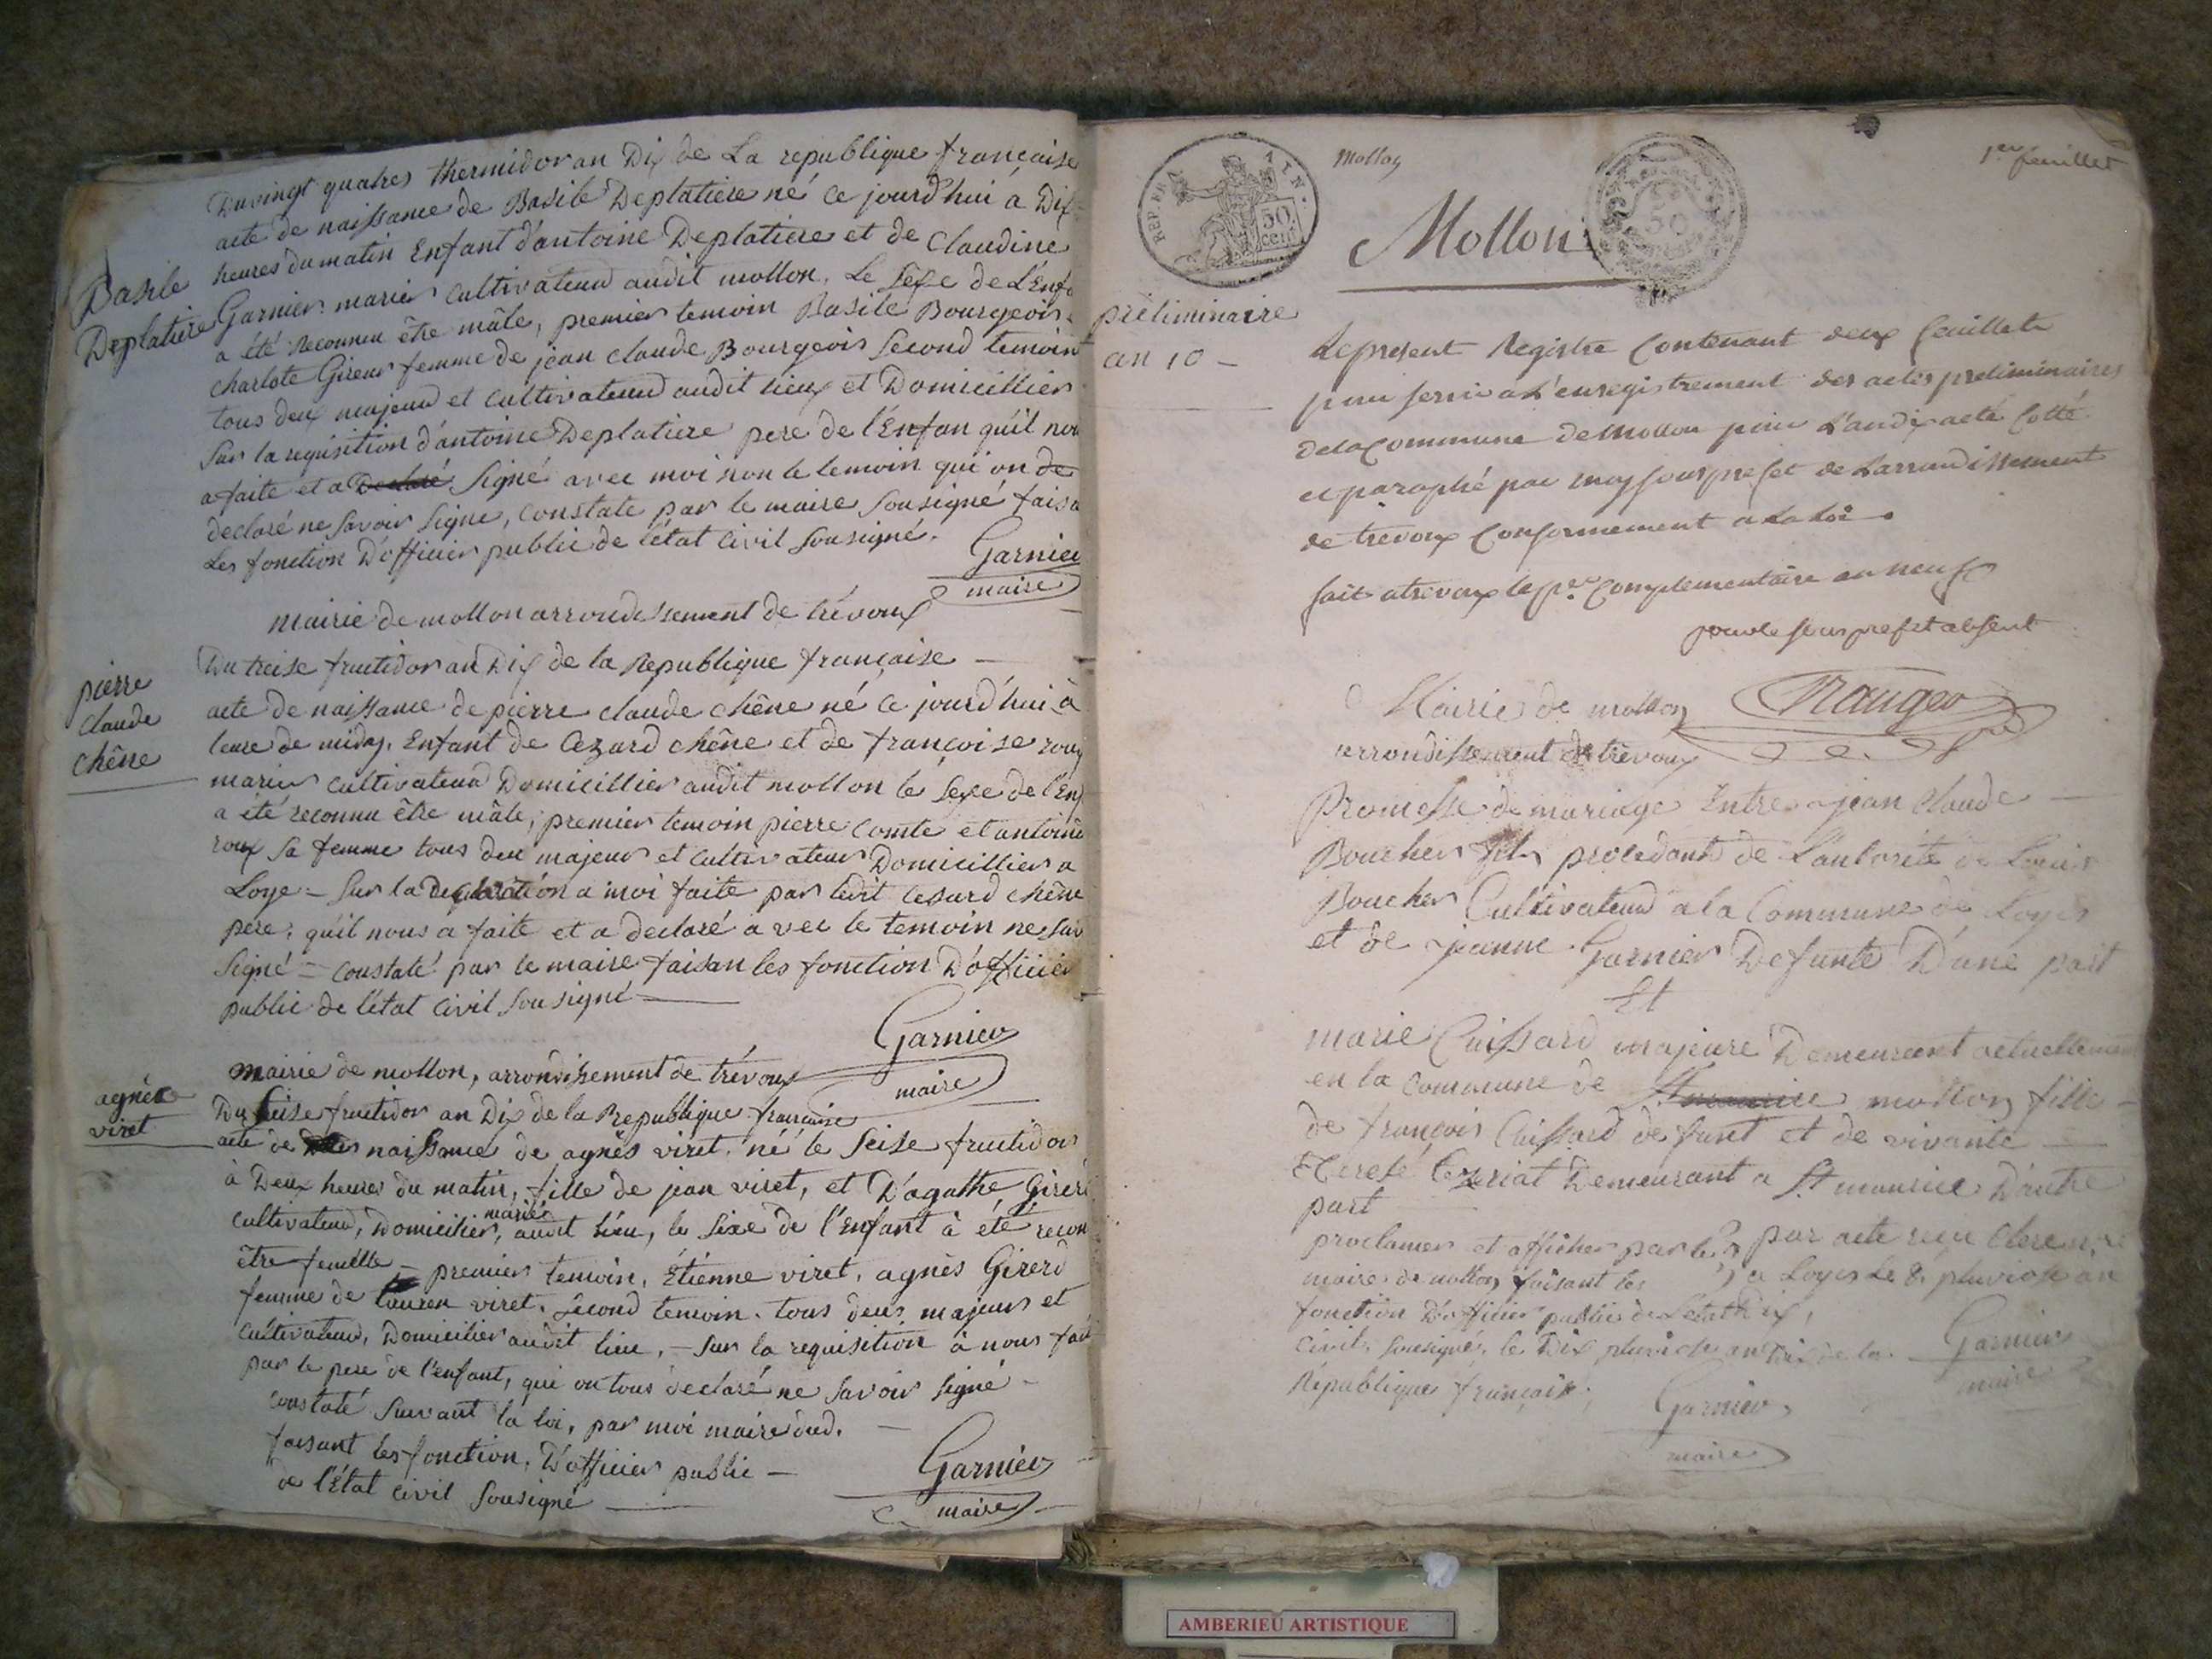 Du vingt quatres thermidor an Dix de La republique françaises
acte de naissance de Basile Deplatiere né ce jourd'hui á Dix
heures du matin Enfant d'antoine Deplatiere et de Claudine
Basile
Deplatiere
Garnier mariés cultivateurs audit mollon. Le sexe de L'Enfa
a été reconnu être mâle, premier temoin Basile Bourgeois
charlote Gireur femme de jean claude Bourgeois second temoin
tous deux majeurs et cultivateurs audit lieux et Domicillier
Sur la requisition d'antoine Deplatiere pere de l'Enfan qu'il nou
a faite et a declaré Signé avec moi non le temoin qui on de
declaré ne savoir signe, constate par le maire sousigné faisa
Les fonction D'officier public de l'état civil sousigné.
Garnier
maire
mairie de mollon arrondissement de trévoux
Du treise fructidor an Dix de la Republique française
pierre
claude
chêne
acte de naissance de pierre claude chêne né ce jourd'hui à
leure de midy. Enfant de Cezard chêne et de françoise roux
mariés cultivateurs Domicillier audit mollon le sexe de l'Enf
a été reconnu être mâle, premier temoin pierre comte et antoine
roux sa femme tous deux majeur et cultivateur Domicillier a
Loye = Sur la declaration a moi faite par ledit Cesard chêne
pere, qu'il nous a faite et a declaré avec le temoin ne sav
Signé = constaté par le maire faisan les fonction D'officier
public de l'état civil sousigné
Garnier
maire
mairie de mollon, arrondissement de trévoux
agnès
viret
Du seise fructidor an Dix de la Republique française
acte de naissance de agnès viret. né le seise fructidor
à Deux heures du matin, fille de jean viret, et D'agathe Girerd
mariés
cultivateurs, Domicilier, audit lieu, le sixe de l'Enfant à été recon
être femelle – premier temoin, Étienne viret, agnès Girerd
femme de lauren viret, second temoin. tous deux majeurs et
cultivateurs, Domicilier audit lieu, – sur la requisition à nous fait
par le pere de l'enfant, qui on tous declaré ne savoir signé –
constaté suivant la loi, par moi maire dud.
faisant les fonction, D'officier public –
de l'État civil sousigné
Garnier
maire
REP. FRA
50
cent
Mollon
50
1er feuillet
Mollon
préliminaire
an 10 –
Le present Registre contenant deux feuillets
pour servir a L'enregistrement des actes preliminaires
de la Commune de Mollon pour L'an dix a eté Cotté
et paraphé par moy sousprefet de Larrondissement
de trevoux Conformement a La Loi.
fait a trevoux le per complementaire an neuf
pour le sous prefet absent
Mairie de mollon
arrondissement de trévoux
Promesse de mariage Entre jean Claude
Boucher fils procedant de L'autorité de Louis
Boucher Cultivateur a la Commune de Loyes
et de jeanne Garnier Defunte D'une part
Et
marie Cuissard majeure Demeurant actuellement
en la commune de St maurice mollon fille
de françois Cuissard defunt et de vivante
Therese Demeurant a St maurice D'autre
part
proclamer et afficher par le
maire de mollon faisant les
fonction d'officier public de L'état
civil sousigné, le Dix pluviose an Dix de la
République française.
par acte reçu
a Loyes Le 8 pluviose an
Dix,
Garnier
maire
Garnier
maire
AMBERIEU ARTISTIQUE